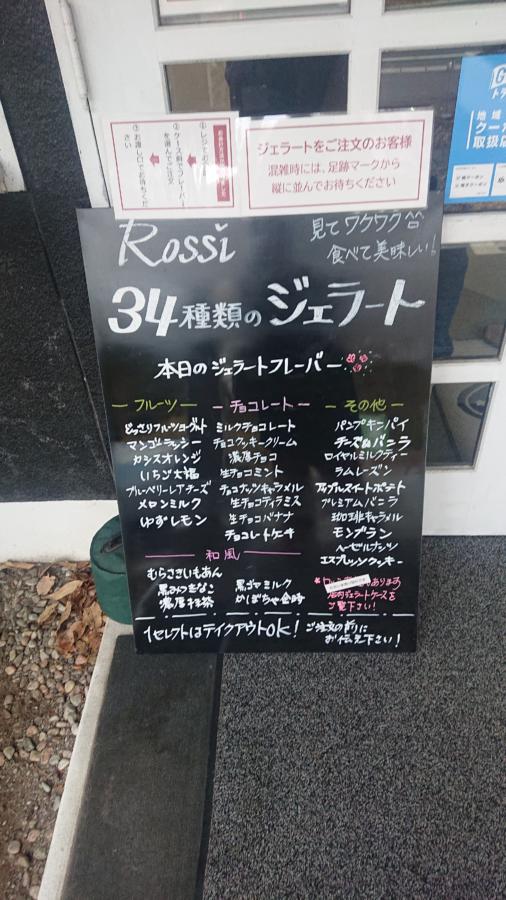 ジェラートをご注文のお客様
混雑時には、足跡マークから
縦に並んでお待ちください
Rossi
見てワクワク
食べて美味しい!
34種類のジェラート
本日のジェラートフレーバー
フルーツ
どっさりフルーツヨーグルト
マンゴラッシー
カシスオレンジ
いちご大福
ブルーベリーレアチーズ
メロンミルク
ゆずレモン
チョコレート
ミルクチョコレート
チョコクッキークリーム
濃厚チョコ
生チョコミント
チョコナッツキャラメル
生チョコティラミス
生チョコバナナ
チョコレートケーキ
その他
パンプキンパイ
チーズdeバニラ
ロイヤルミルクティー
ラムレーズン
アップルスイートポテト
プレミアムバニラ
珈琲キャラメル
モンブラン
ヘーゼルナッツ
エスプレッソクッキー
和風
むらさきいもあん
黒みつきなこ
濃厚抹茶
黒ゴマミルク
かぼちゃ金時
あります
ジェラートケースを
ご覧下さい!
1セレクトはテイクアウトOK!
ご注文の前に
お伝え下さい!
地域
クー
取扱店